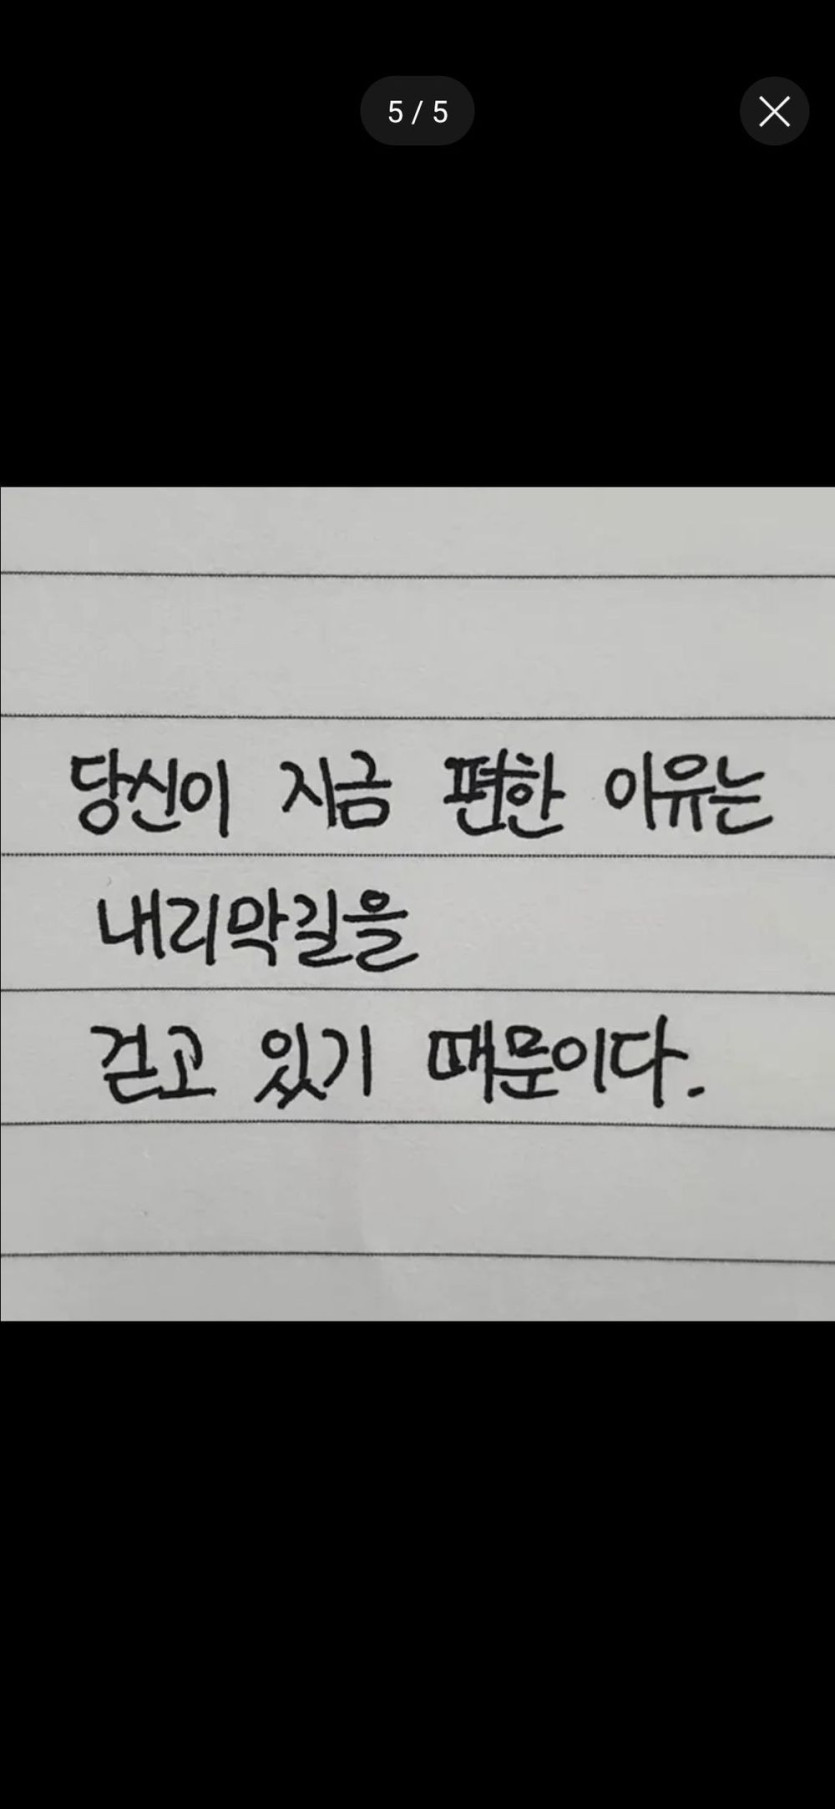 5 / 5
당신이 지금 편한 이유는
내리막길을
걷고 있기 때문이다.